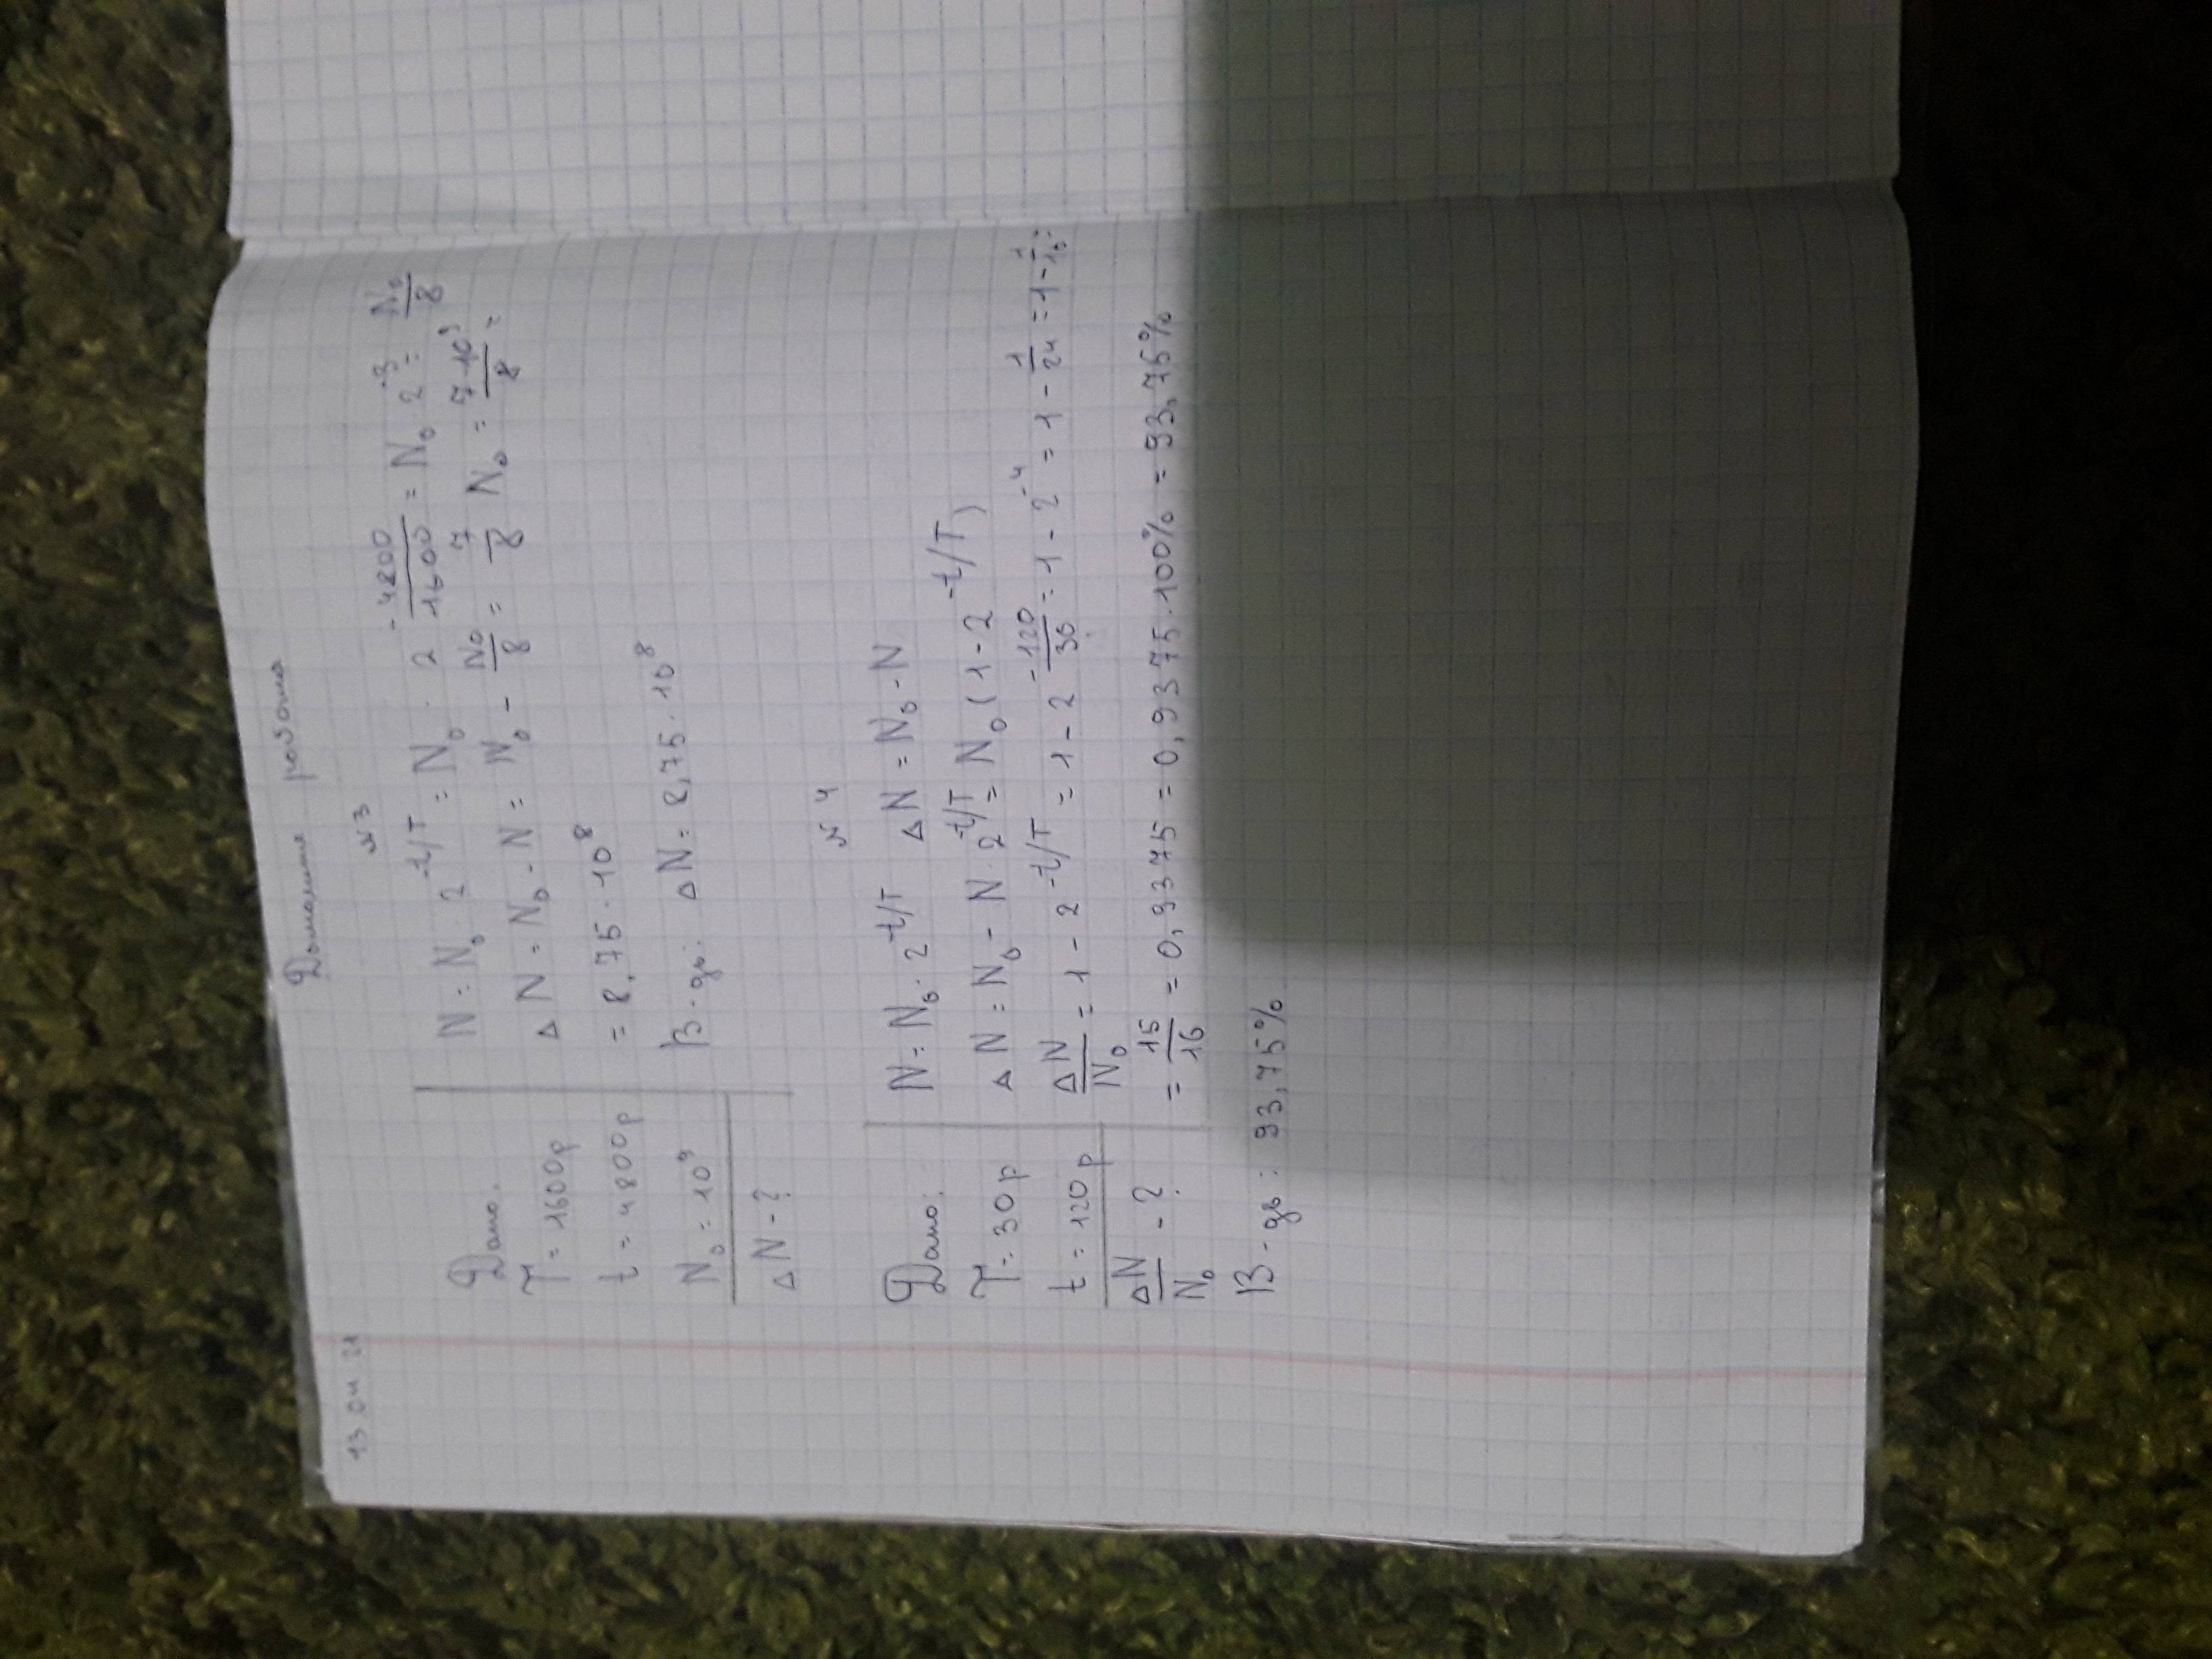 13.04.21
Домашня робота
№3
Дано:
T = 1600р
t = 4800р
N₀ = 10⁹
ΔN - ?
N = N₀ 2^(-t/T) = N₀ · 2^(-4800/1600) = N₀ 2^(-3) = N₀/8
ΔN = N₀ - N = N₀ - N₀/8 = 7/8 N₀ = 7·10⁹/8 =
= 8,75 · 10⁸
В-дь: ΔN = 8,75 · 10⁸
№4
Дано:
T = 30р
t = 120р
ΔN/N₀ - ?
N = N₀ · 2^(-t/T) ΔN = N₀ - N
ΔN = N₀ - N · 2^(-t/T) = N₀ (1 - 2^(-t/T))
ΔN/N₀ = 1 - 2^(-t/T) = 1 - 2^(-120/30) = 1 - 2^(-4) = 1 - 1/24 = 1 - 1/16 =
= 15/16 = 0,9375 = 0,9375 · 100% = 93,75%
В-дь: 93,75%